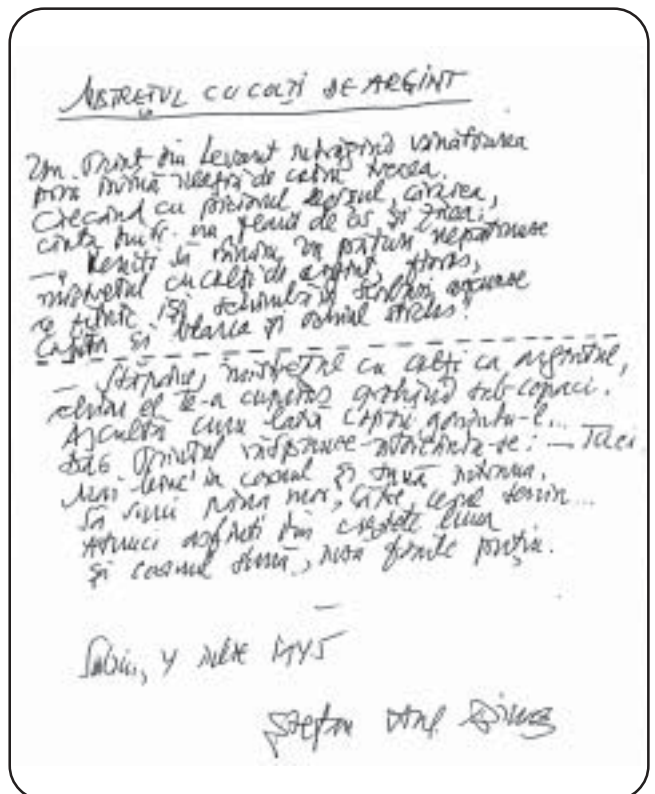 MISTREȚUL CU COLȚI DE ARGINT
Un prinț din Levant îndrăgind vânătoarea
prin inimă neagră de codru trecea.
Croind cu piciorul cărarea,
cânta dintr-un flaut de os și zicea:
— Veniți să vânăm în păduri nepătrunse
mistrețul cu colți de argint, fioros,
ce zilnic își schimbă în scorburi ascunse
copita și blana și ochiul sticlos!
— Stăpâne, mistrețul cu colți ca argintul,
chiar el te-a cuprins grohăind sub copaci.
Ascultă cum latră copoii gonindu-l...
Dar prințul răspunse-ntorcându-se: — Taci.
Mai bine ia cornul și sună întruna.
Să suni până mor, către cerul senin...
Atunci asfinți din creștete luna
și cornul sună, însă foarte puțin.
Sibiu, 4 iulie 1945
Ștefan Aug. Doinaș